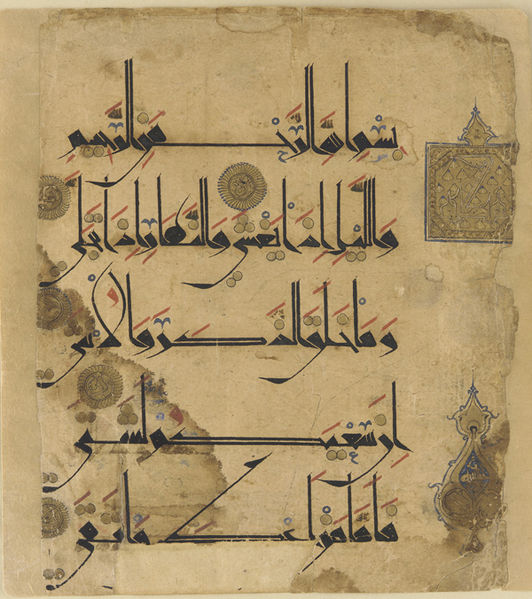 بِسْمِ اللَّهِ الرَّحْمَٰنِ الرَّحِيمِ
وَاللَّيْلِ إِذَا يَغْشَى وَالنَّهَارِ إِذَا تَجَلَّى
وَمَا خَلَقَ الذَّكَرَ وَالْأُنْثَى
إِنَّ سَعْيَكُمْ لَشَتَّى
فَأَمَّا مَنْ أَعْطَى وَاتَّقَى